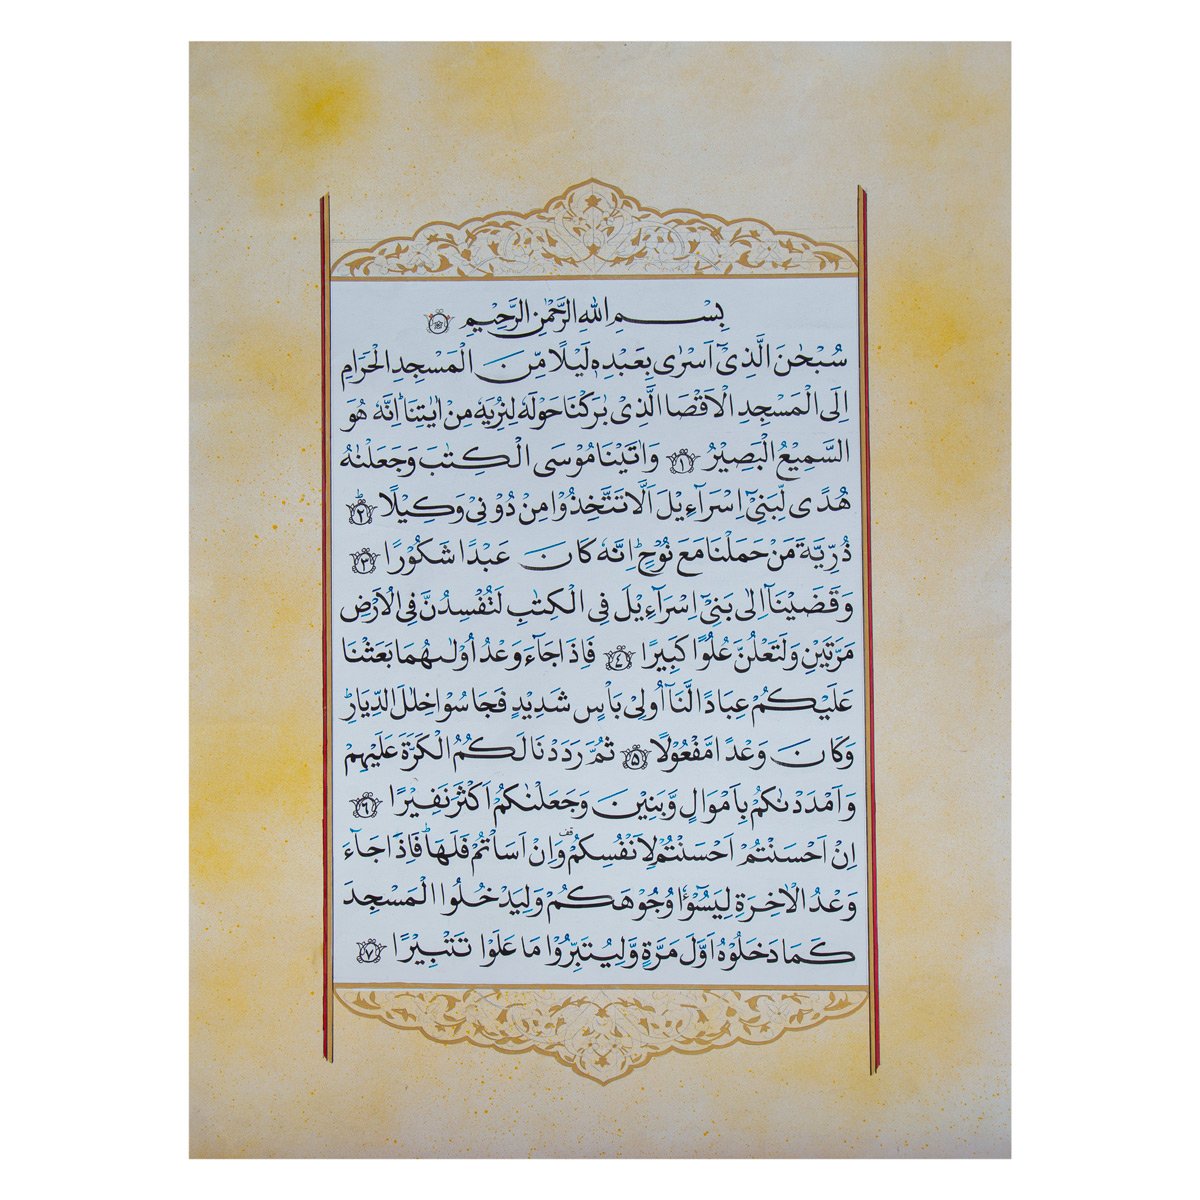 بِسْمِ اللّٰهِ الرَّحْمٰنِ الرَّحِيْمِ
سُبْحٰنَ الَّذِيْٓ اَسْرٰى بِعَبْدِهٖ لَيْلًا مِّنَ الْمَسْجِدِ الْحَرَامِ
اِلَى الْمَسْجِدِ الْاَقْصَا الَّذِيْ بٰرَكْنَا حَوْلَهٗ لِنُرِيَهٗ مِنْ اٰيٰتِنَاۗ اِنَّهٗ هُوَ
السَّمِيْعُ الْبَصِيْرُ ۝١ وَاٰتَيْنَا مُوْسَى الْكِتٰبَ وَجَعَلْنٰهُ
هُدًى لِّبَنِيْٓ اِسْرَاۤءِيْلَ اَلَّا تَتَّخِذُوْا مِنْ دُوْنِيْ وَكِيْلًاۗ ۝٢
ذُرِّيَّةَ مَنْ حَمَلْنَا مَعَ نُوْحٍۗ اِنَّهٗ كَانَ عَبْدًا شَكُوْرًا ۝٣
وَقَضَيْنَآ اِلٰى بَنِيْٓ اِسْرَاۤءِيْلَ فِى الْكِتٰبِ لَتُفْسِدُنَّ فِى الْاَرْضِ
مَرَّتَيْنِ وَلَتَعْلُنَّ عُلُوًّا كَبِيْرًا ۝٤ فَاِذَا جَاۤءَ وَعْدُ اُوْلٰىهُمَا بَعَثْنَا
عَلَيْكُمْ عِبَادًا لَّنَآ اُولِيْ بَأْسٍ شَدِيْدٍ فَجَاسُوْا خِلٰلَ الدِّيَارِۗ
وَكَانَ وَعْدًا مَّفْعُوْلًا ۝٥ ثُمَّ رَدَدْنَا لَكُمُ الْكَرَّةَ عَلَيْهِمْ
وَاَمْدَدْنٰكُمْ بِاَمْوَالٍ وَّبَنِيْنَ وَجَعَلْنٰكُمْ اَكْثَرَ نَفِيْرًا ۝٦
اِنْ اَحْسَنْتُمْ اَحْسَنْتُمْ لِاَنْفُسِكُمْ ۗقف وَاِنْ اَسَأْتُمْ فَلَهَاۗ فَاِذَا جَاۤءَ
وَعْدُ الْاٰخِرَةِ لِيَسُوْۤءٗا وُجُوْهَكُمْ وَلِيَدْخُلُوا الْمَسْجِدَ
كَمَا دَخَلُوْهُ اَوَّلَ مَرَّةٍ وَّلِيُتَبِّرُوْا مَا عَلَوْا تَتْبِيْرًا ۝٧